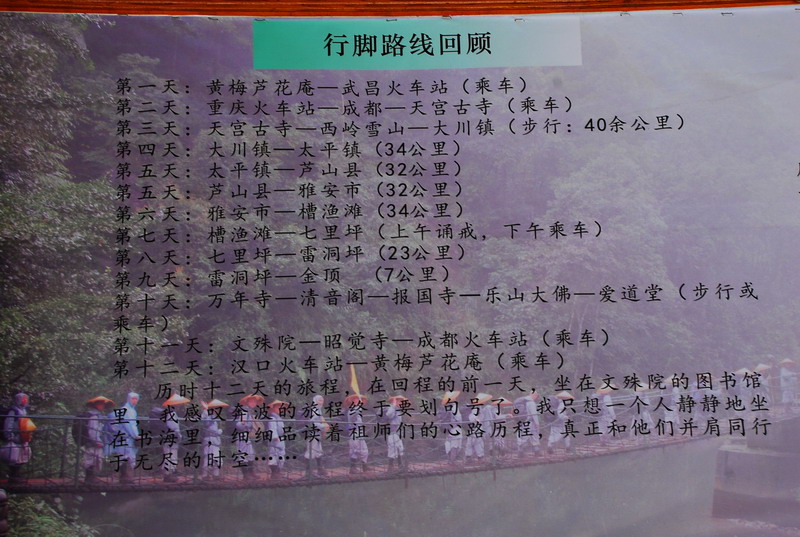 行脚路线回顾
第一天：黄梅芦花庵—武昌火车站（乘车）
第二天：重庆火车站—成都—天宫古寺（乘车）
第三天：天宫古寺—西岭雪山—大川镇（步行：40余公里）
第四天：大川镇—太平镇（34公里）
第五天：太平镇—芦山县（32公里）
第五天：芦山县—雅安市（32公里）
第六天：雅安市—槽渔滩（34公里）
第七天：槽渔滩—七里坪（上午诵戒，下午乘车）
第八天：七里坪—雷洞坪（23公里）
第九天：雷洞坪—金顶　（7公里）
第十天：万年寺—清音阁—报国寺—乐山大佛—爱道堂（步行或
乘车）
第十一天：文殊院—昭觉寺—成都火车站（乘车）
第十二天：汉口火车站—黄梅芦花庵（乘车）
历时十二天的旅程，在回程的前一天，坐在文殊院的图书馆
里，我感叹奔波的旅程终于要划句号了。我只想一个人静静地坐
在书海里，细细品读着祖师们的心路历程，真正和他们并肩同行
于无尽的时空……